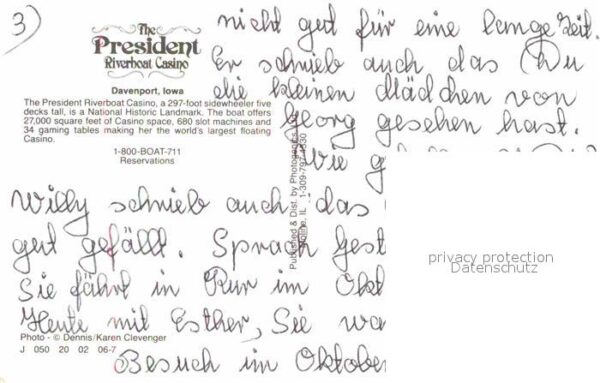 3)
The
President
Riverboat Casino
Davenport, Iowa
The President Riverboat Casino, a 297-foot sidewheeler five
decks tall, is a National Historic Landmark. The boat offers
27,000 square feet of Casino space, 680 slot machines and
34 gaming tables making her the world's largest floating
Casino.
1-800-BOAT-711
Reservations
nicht gut für eine lange Zeit.
Er schrieb auch das Du
die kleinen Mädchen von
Georg gesehen hast.
Wie g
Willy schrieb auch das
gut gefällt. Sprach Gest
Sie fährt in Kur im Okt
Heute mit Esther, Sie wa
Besuch im Oktober
Published & Dist. by
IL 1-309-797-
Photo - © Dennis/Karen Clevenger
J 050 20 02 06-7
privacy protection
Datenschutz